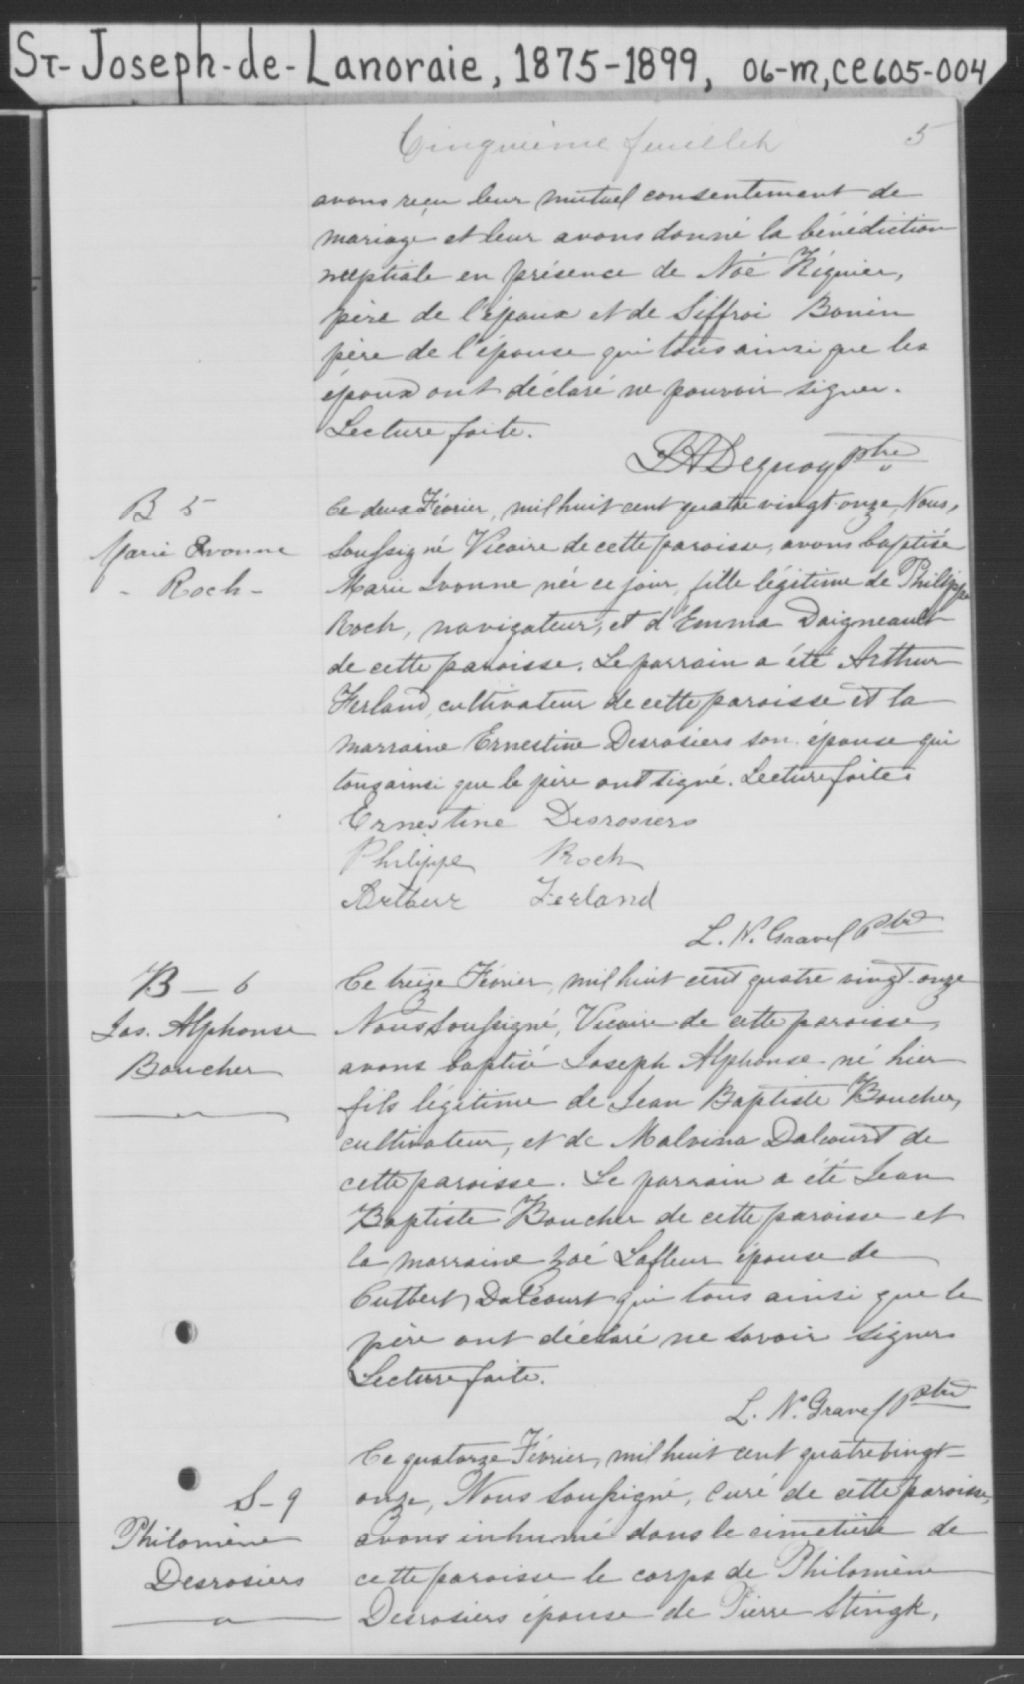 St-Joseph-de-Lanoraie, 1875-1899, 06-m, CE605-004
Cinquième feuillet 5
avons reçu leur mutuel consentement de
mariage et leur avons donné la bénédiction
nuptiale en présence de Noé
père de l'époux et de Siffroi Bonin
père de l'épouse qui tous ainsi que les
époux ont déclaré ne pouvoir signer.
Lecture faite.
ptre
B 5
Marie Yvonne
- Roch -
Ce deux Février, mil huit cent quatre vingt-onze, Nous,
Soussigné Vicaire de cette paroisse, avons baptisé
Marie Ivonne née ce jour, fille légitime de Philippe
Roch, navigateur, et d'Emma Daigneault
de cette paroisse. Le parrain a été Arthur
Ferland, cultivateur de cette paroisse et la
marraine Ernestine Desrosiers son épouse qui
tous ainsi que le père ont signé. Lecture faite.
Ernestine Desrosiers
Philippe Roch
Arthur Ferland
L. N. Gravel Ptre
B - 6
Jos. Alphonse
Boucher
Ce treize Février, mil huit cent quatre vingt-onze
Nous Soussigné, Vicaire de cette paroisse,
avons baptisé Joseph Alphonse né hier
fils légitime de Jean Baptiste Boucher,
cultivateur, et de Malvina Dalcourt de
cette paroisse. Le parrain a été Jean
Baptiste Boucher de cette paroisse et
la marraine Zoé Lafleur épouse de
Cutbert Dalcourt qui tous ainsi que le
père ont déclaré ne savoir signer
Lecture faite.
L. N. Gravel Ptre
S - 9
Philomène
Desrosiers
Ce quatorze Février, mil huit cent quatre vingt-
onze, Nous Soussigné, Curé de cette paroisse,
avons inhumé dans le cimetière de
cette paroisse le corps de Philomène
Desrosiers épouse de Pierre Stingk,